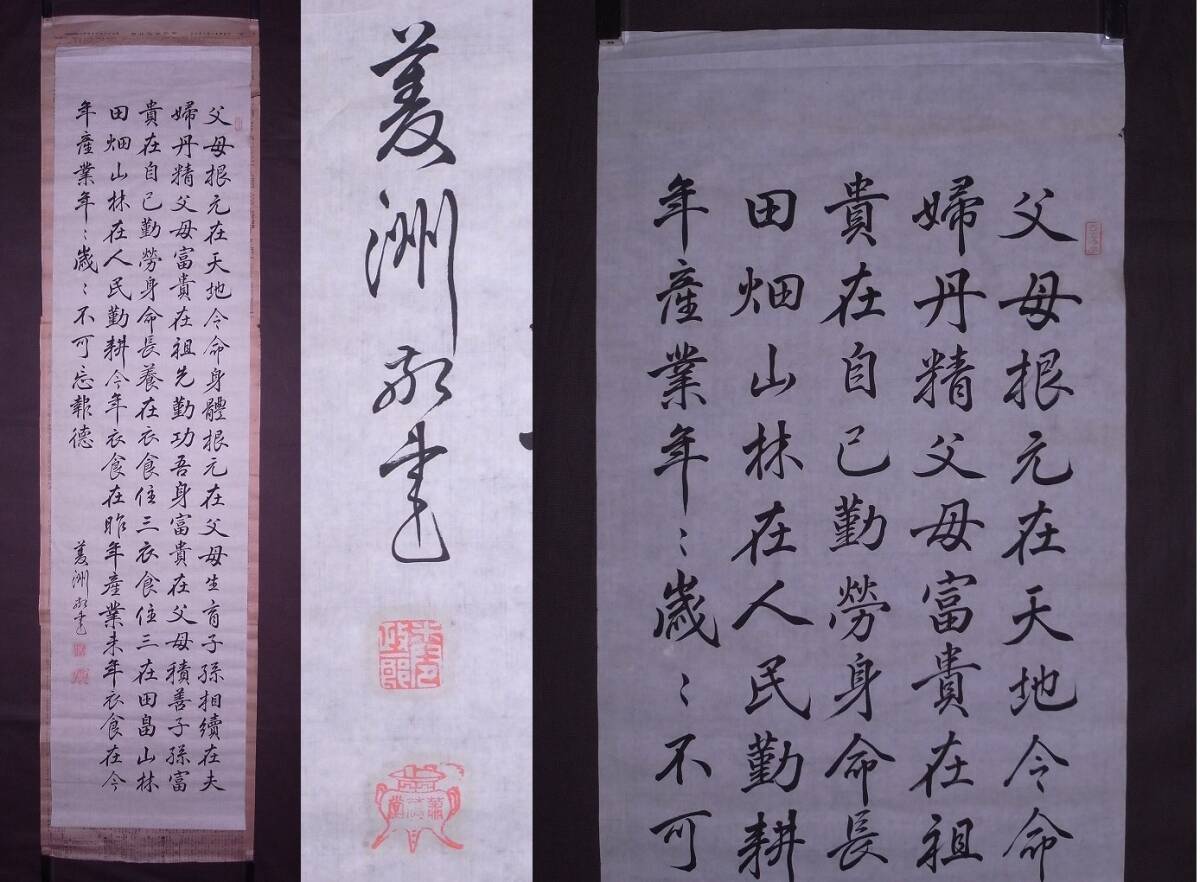 父母根元在天地令命身體根元在父母生育子孫相續在夫
婦丹精父母富貴在祖先勤功吾身富貴在父母積善子孫富
貴在自己勤勞身命長養在衣食住三衣食住三在田畠山林
田畑山林在人民勤耕今年衣食在昨年產業来年衣食在今
年產業年〻歳〻不可忘報德
菱洲敬書
菱洲敬書
父母根元在天地令命
婦丹精父母富貴在祖
貴在自己勤勞身命長
田畑山林在人民勤耕
年產業年〻歳〻不可